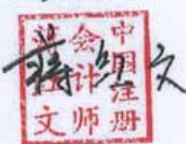 中国注册
会计师
文
蒋 文